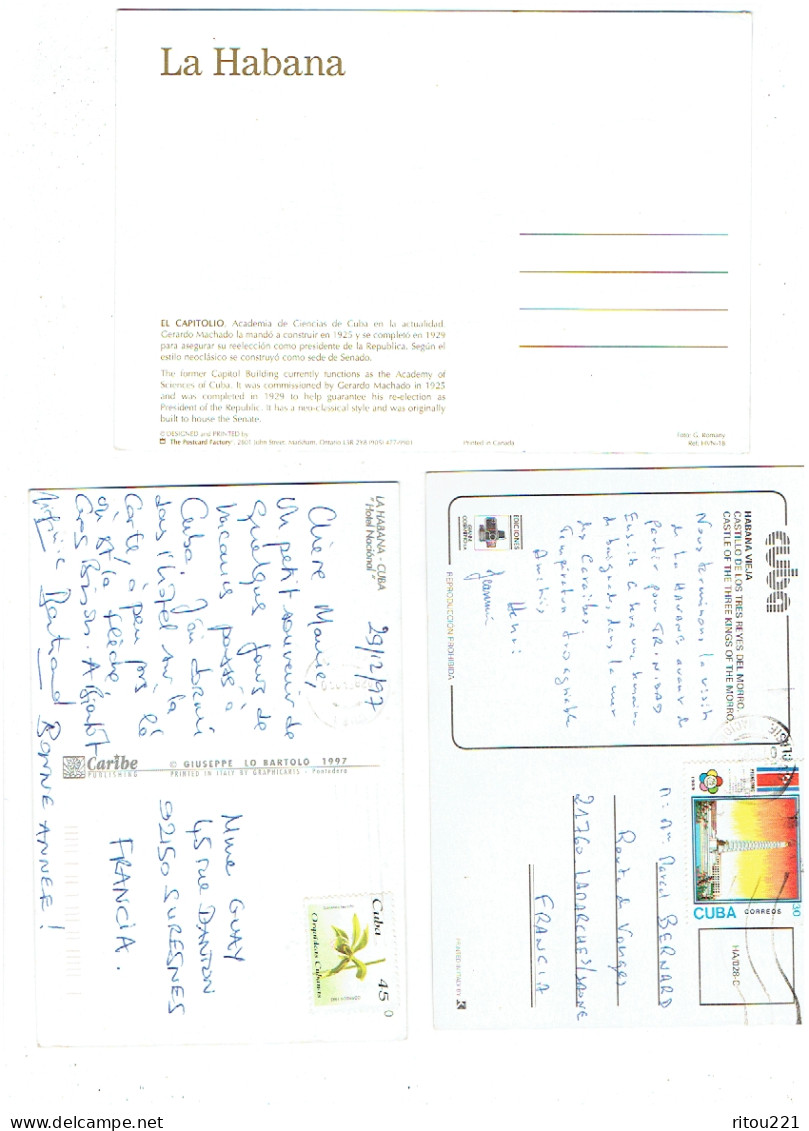 La Habana
EL CAPITOLIO. Academia de Ciencias de Cuba en la actualidad.
Gerardo Machado la mandó a construir en 1925 y se completó en 1929
para asegurar su reelección como presidente de la Republica. Según el
estilo neoclásico se construyó como sede de Senado.
The former Capitol Building currently functions as the Academy of
Sciences of Cuba. It was commissioned by Gerardo Machado in 1925
and was completed in 1929 to help guarantee his re-election as
President of the Republic. It has a neo-classical style and was originally
built to house the Senate.
© DESIGNED and PRINTED by
The Postcard Factory, 2801 John Street, Markham, Ontario L3R 2Y8 (905) 477-9901
Printed in Canada
Foto: G. Romany
Ref. HVN-18
LA HABANA - CUBA
"Hotel Nacional"
29/12/97
Chère Mamie,
Un petit souvenir de
quelques jours de
vacances passés à
Cuba J'ai dormi
dans l'hotel sur la
Carte, à peu près là
où est la flèche,
Gros Bisous. A Bientôt
Bertrand
BONNE ANNEE!
Caribe
PUBLISHING
© GIUSEPPE LO BARTOLO 1997
PRINTED IN ITALY BY GRAPHICARIS - Pontedera
Cuba
45
Orquídeas Cubanas
Mme GUAY
45 rue DANTON
92150 SURESNES
FRANCIA.
cuba
HABANA VIEJA
CASTILLO DE LOS TRES REYES DEL MORRO.
CASTLE OF THE THREE KINGS OF THE MORRO.
Nous terminons la visite
de La HAVANE avant de
partir pour TRINIDAD
Ensuite ce sera une semaine
de baignade, dans la mer
des Caraïbes
Température très agréable
Amitiés
Henri
EDICIONES
REPRODUCCION PROHIBIDA
CUBA CORREOS
30
HA/028-C
BERNARD
Route de Vosges
21760 LAMARCHE S/SAONE
FRANCIA
PRINTED IN ITALY BY
ritou221